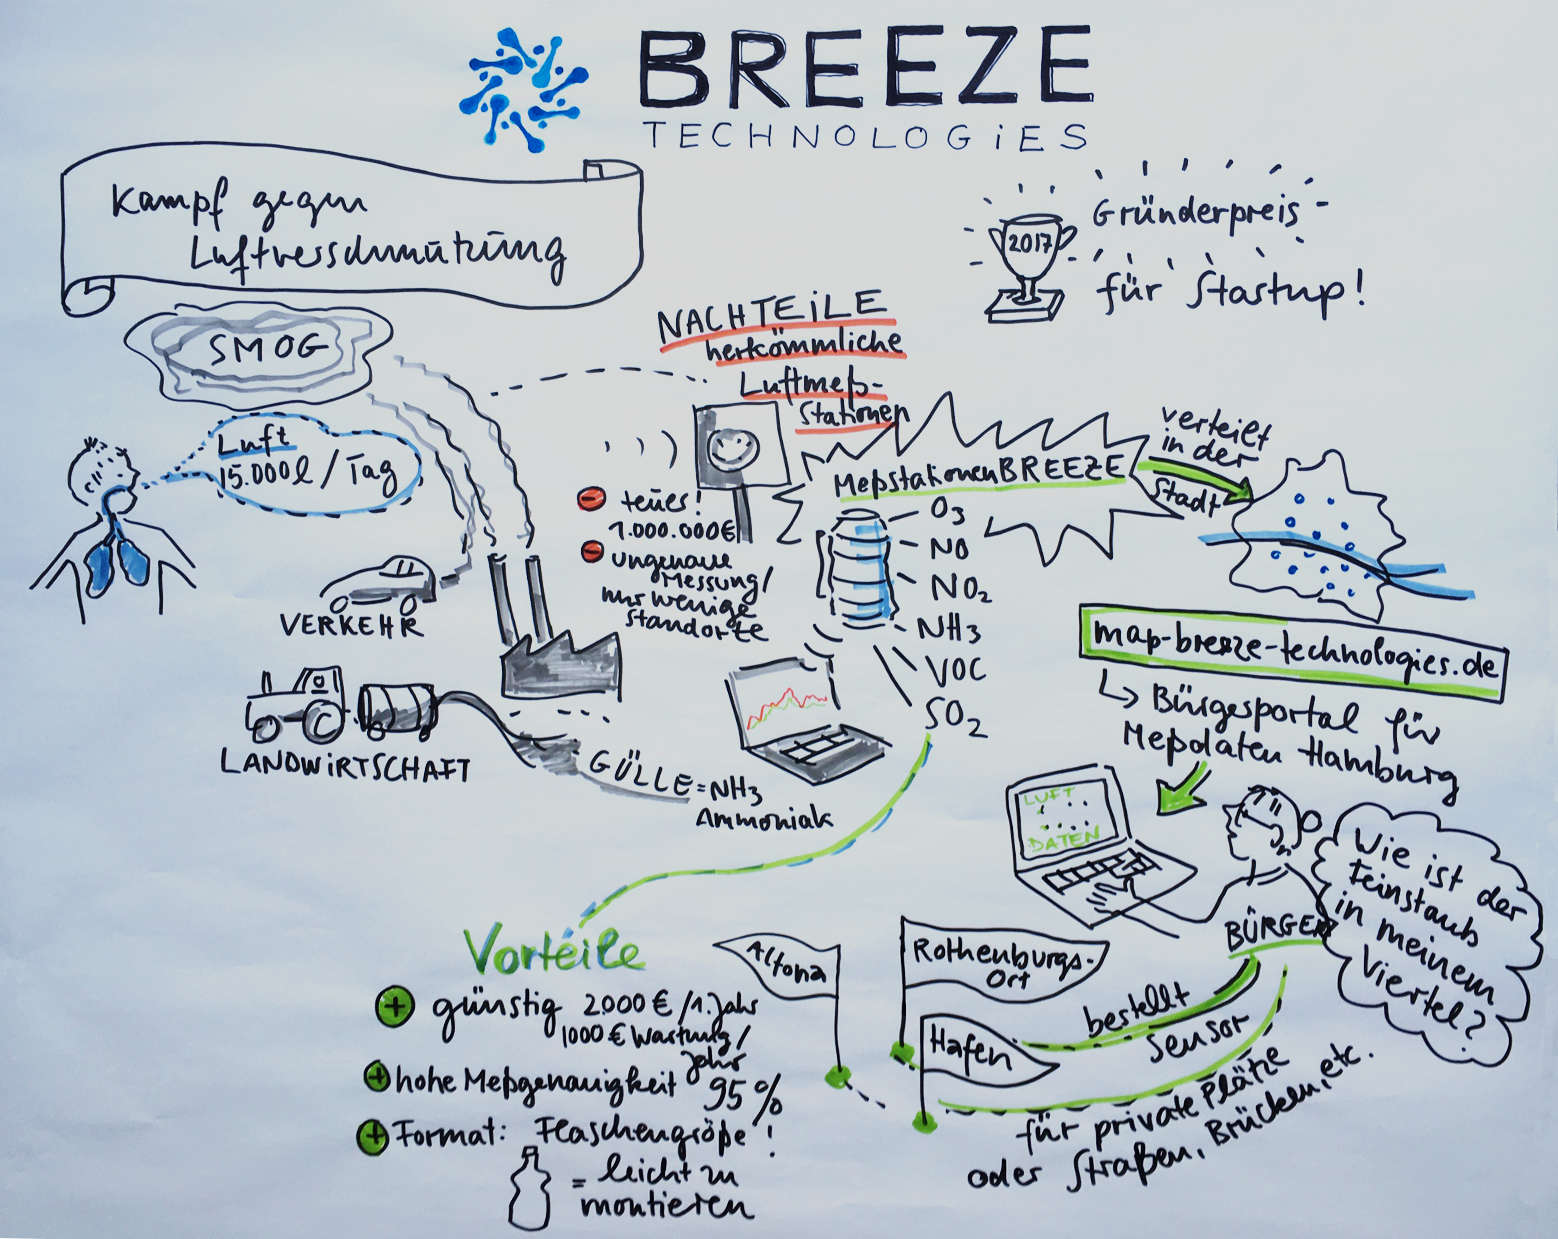 BREEZE
TECHNOLOGiES
Kampf gegen
Luftverschmutzung
2017
Gründerpreis-
für Startup!
SMOG
Luft
15.000l / Tag
VERKEHR
LANDWiRTSCHAFT
GÜLLE = NH3
Ammoniak
NACHTEiLE
herkömmliche
Luftmeß-
stationen
teuer!
1.000.000€
ungenaue
Messung/
nur wenige
Standorte
Meßstationen BREEZE
O3
NO
NO2
NH3
VOC
SO2
verteilt
in der
Stadt
map-breeze-technologies.de
Bürgerportal für
Meßdaten Hamburg
LUFT
DATEN
BÜRGER
Wie ist der
Feinstaub
in meinem
Viertel?
Vorteile
günstig 2000 € /1. Jahr
1000 € Wartung/
Jahr
hohe Meßgenauigkeit 95%
Format: Flaschengröße!
= leicht zu
montieren
Altona
Rothenburgs-
Ort
Hafen
bestellt
Sensor
für private Plätze
oder Straßen, Brücken, etc.